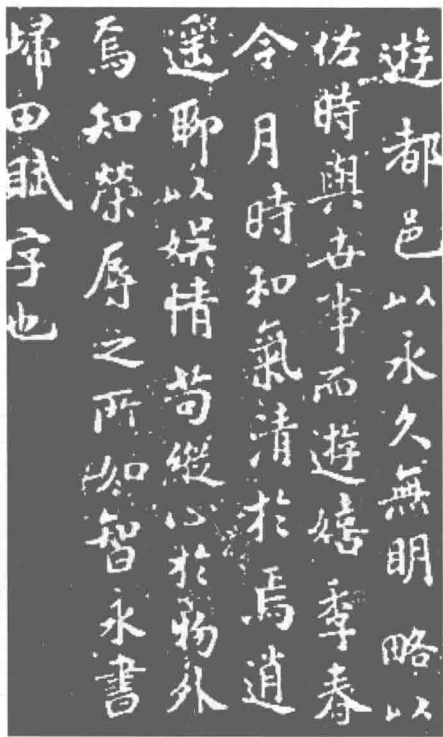 遊都邑以永久無明略以
佐時與世事而遊嬉季春
令月時和氣清於焉逍
遥聊以娯情苟縱心於物外
焉知榮辱之所如智永書
歸田賦字也